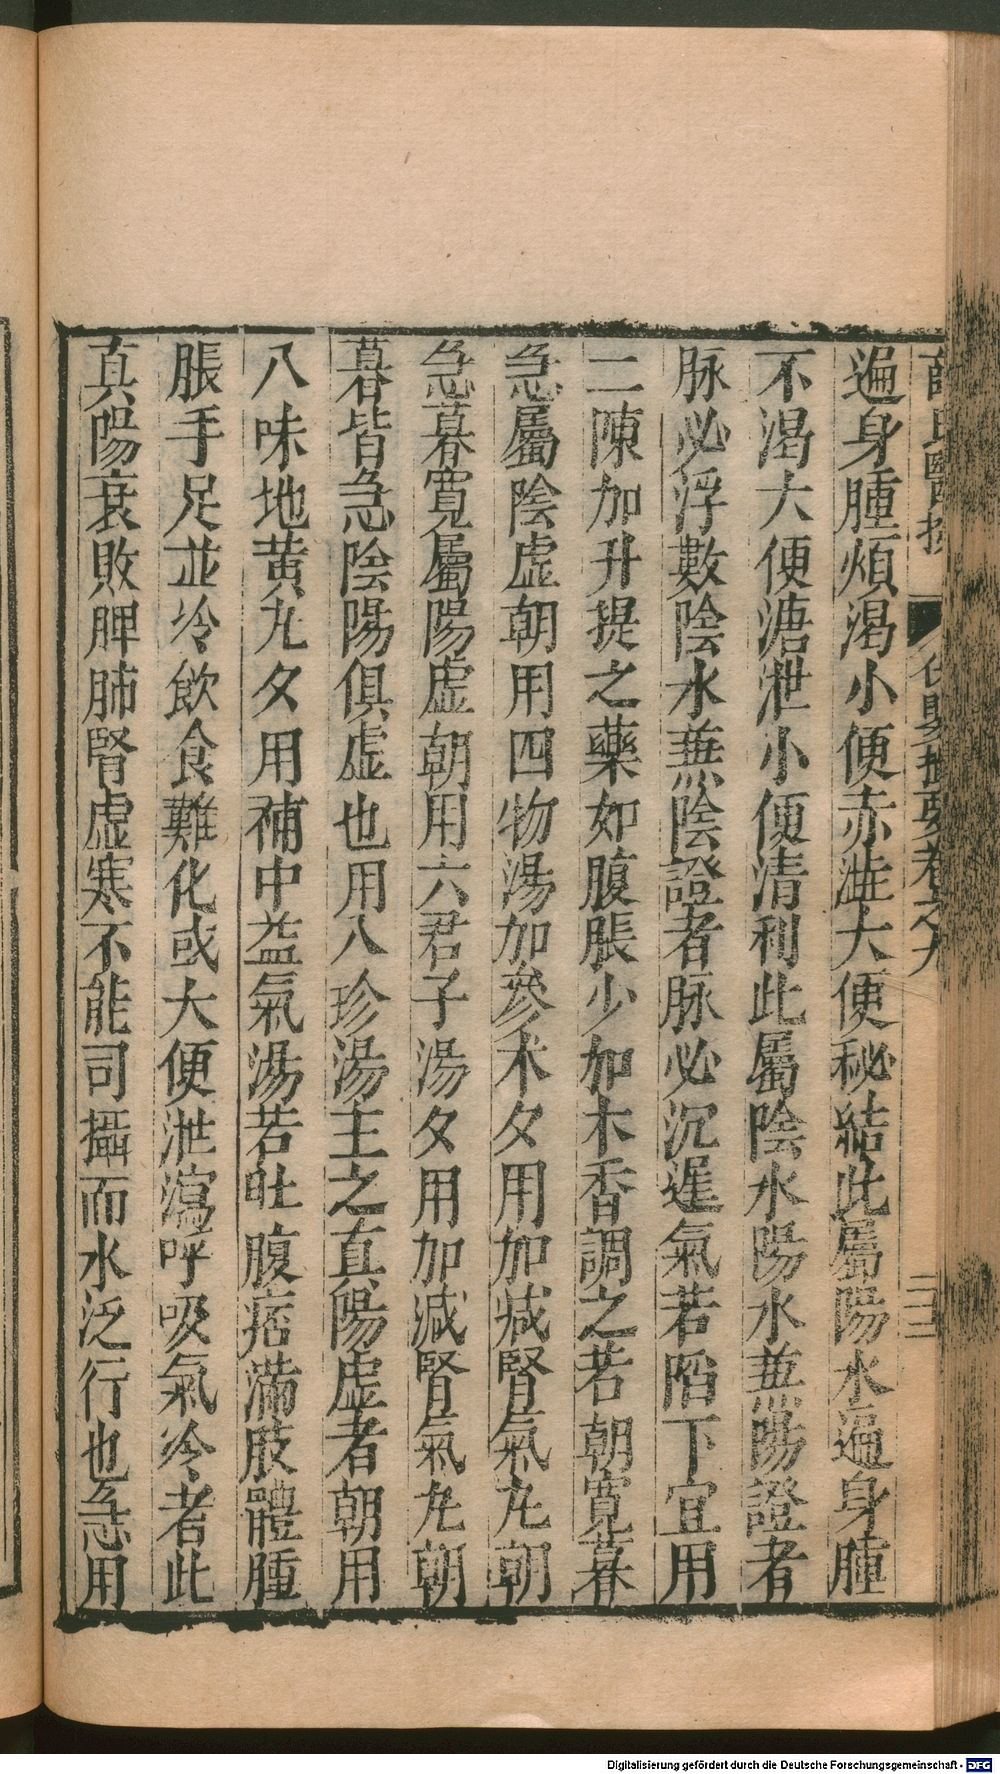 薛氏醫按 保嬰撮要卷之九 二十二
遍身腫煩渴小便赤澁大便秘結此屬陽水遍身腫
不渴大便溏泄小便清利此屬陰水陽水兼陽證者
脉必浮數陰水兼陰證者脉必沉遲氣若陷下宜用
二陳加升提之藥如腹脹少加木香調之若朝寛暮
急屬陰虚朝用四物湯加參术夕用加减腎氣丸朝
急暮寛屬陽虚朝用六君子湯夕用加减腎氣丸朝
暮皆急陰陽俱虚也用八珍湯主之真陽虚者朝用
八味地黄丸夕用補中益氣湯若肚腹痞滿肢體腫
脹手足並冷飲食難化或大便泄瀉呼吸氣冷者此
真陽衰敗脾肺腎虚寒不能司攝而水泛行也急用
Digitalisierung gefördert durch die Deutsche Forschungsgemeinschaft - DFG